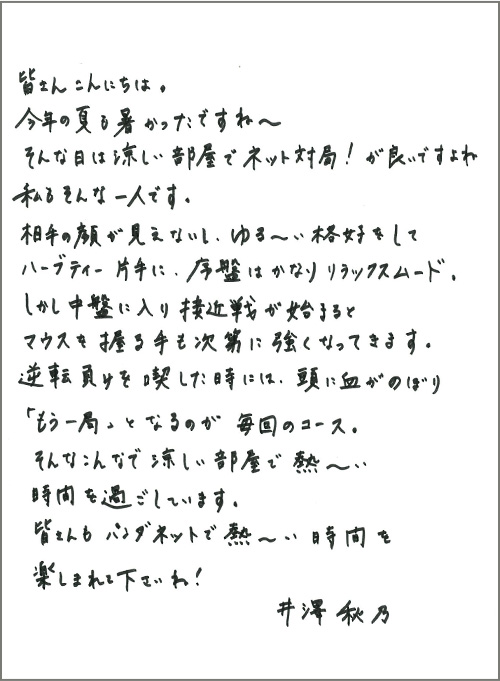 皆さんこんにちは。
今年の夏も暑かったですね～
そんな日は涼しい部屋でネット対局！が良いですよね
私もそんな一人です。
相手の顔が見えないし、ゆる～い格好をして
ハーブティー片手に、序盤はかなりリラックスムード。
しかし中盤に入り接近戦が始まると
マウスを握る手も次第に強くなってきます。
逆転負けを喫した時には、頭に血がのぼり
「もう一局」となるのが毎回のコース。
そんなこんなで涼しい部屋で熱～い
時間を過ごしています。
皆さんもパンダネットで熱～い時間を
楽しまれて下さいね！
井澤秋乃